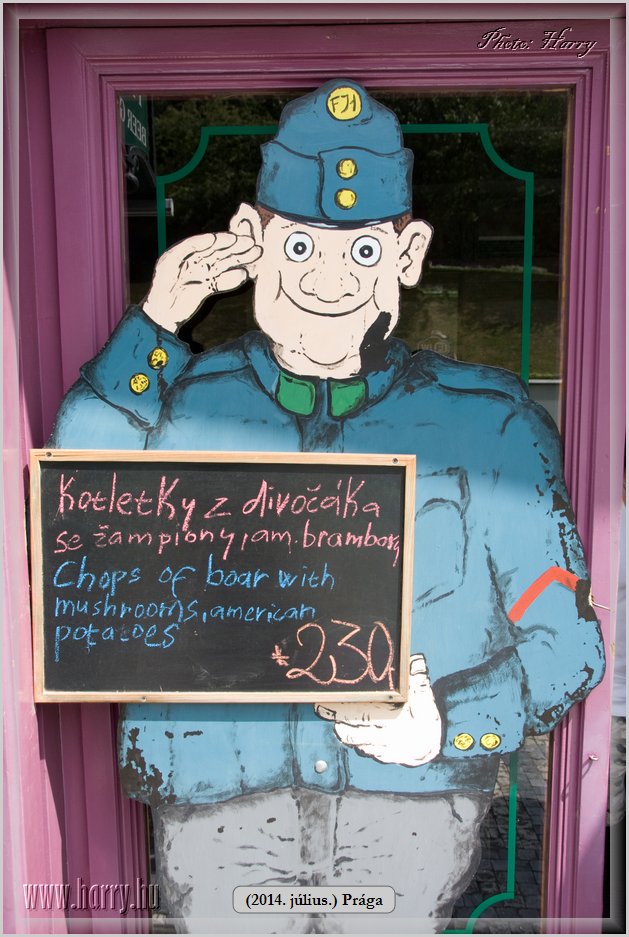 Photo: Harry
BEER G
FJ1
Kotletky z divočáka
se žampiony, am. brambory
Chops of boar with
mushrooms, american
potatoes
230,
www.harry.hu
(2014. július.) Prága